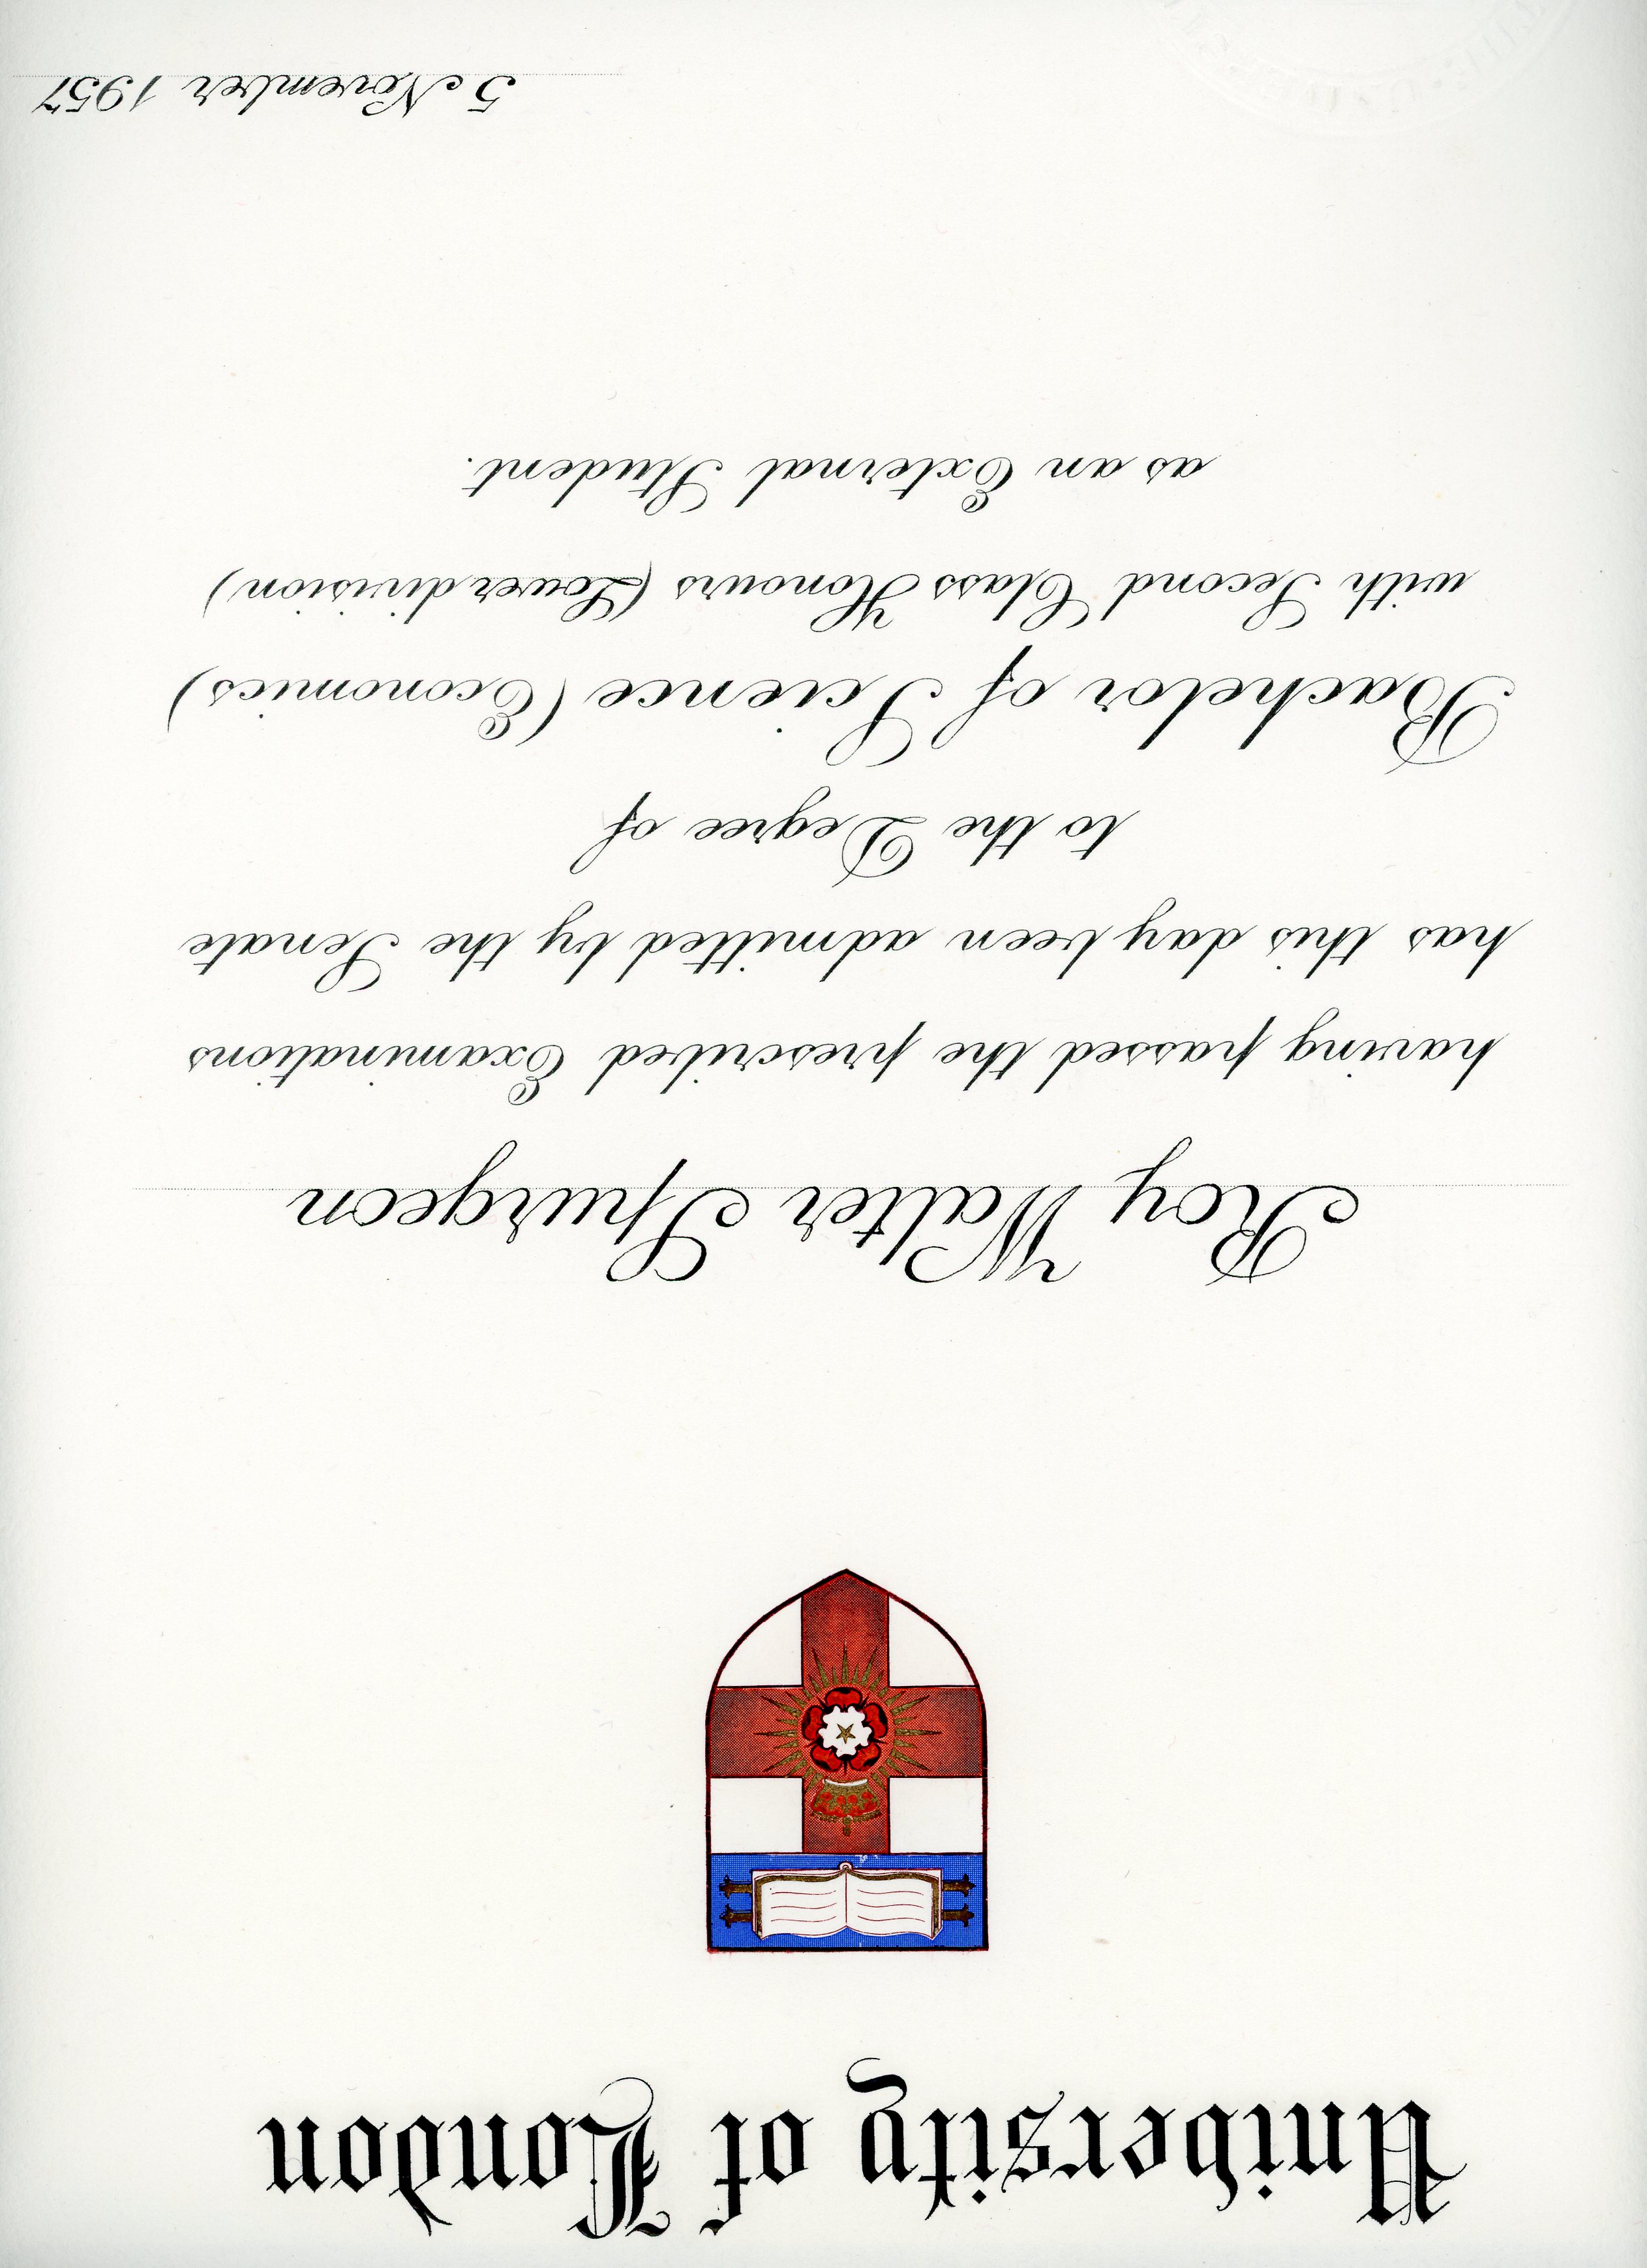 University of London
Roy Walter Spurgeon
having passed the prescribed Examinations
has this day been admitted by the Senate
to the Degree of
Bachelor of Science (Economics)
with Second Class Honours (Lower division)
as an External Student.
5 November 1957